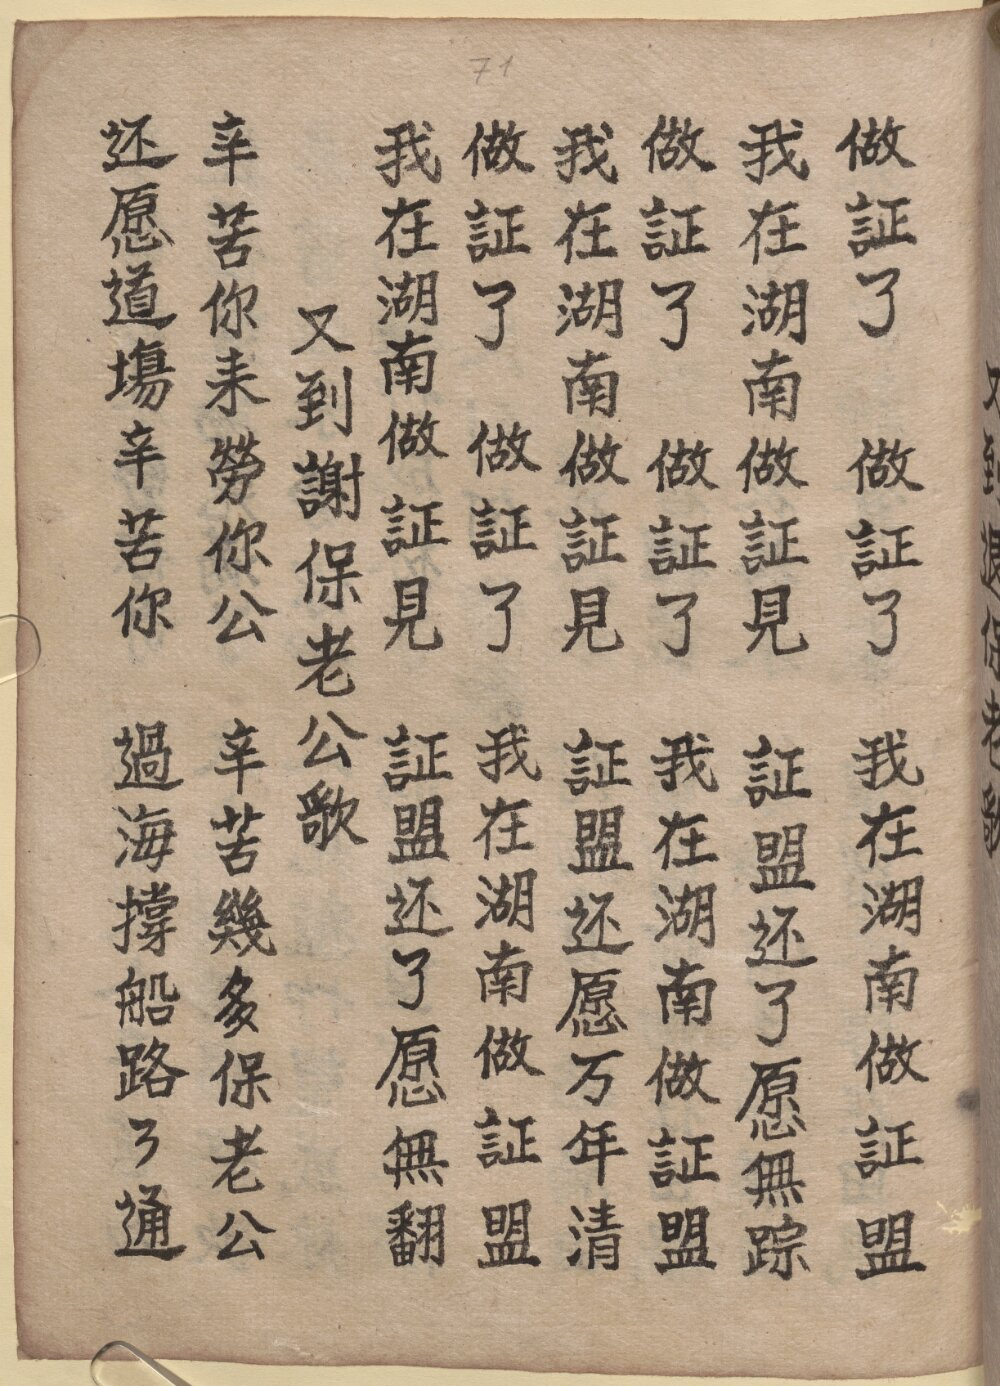 71
做証了 做証了 我在湖南做証盟
我在湖南做証見 証盟还了愿無踪
做証了 做証了 我在湖南做証盟
我在湖南做証見 証盟还愿万年清
做証了 做証了 我在湖南做証盟
我在湖南做証見 証盟还了愿無翻
又到謝保老公歌
辛苦你来勞你公 辛苦幾多保老公
还愿道塲辛苦你 過海撑船路了通